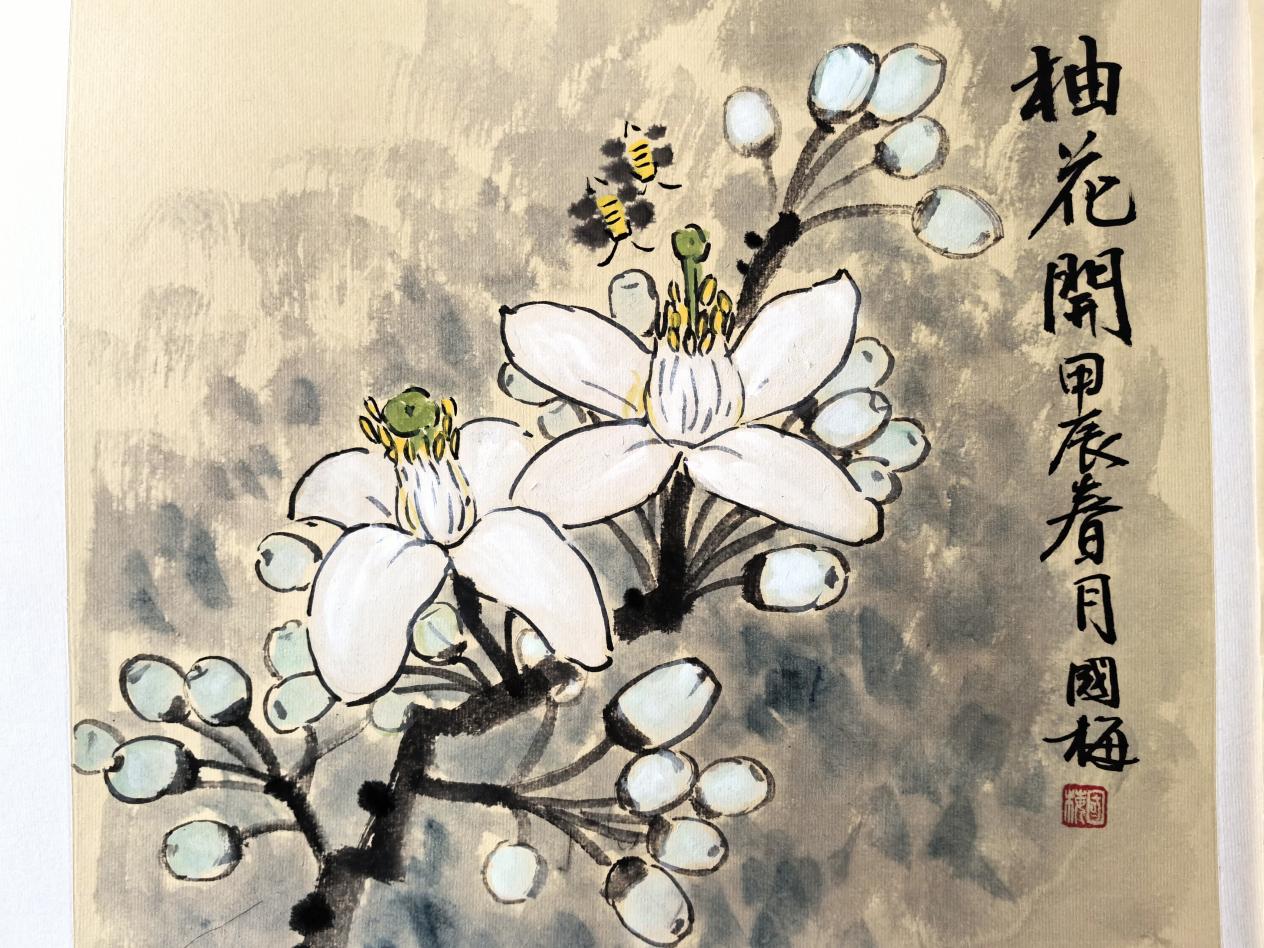 柚花開甲辰春月國梅
国梅